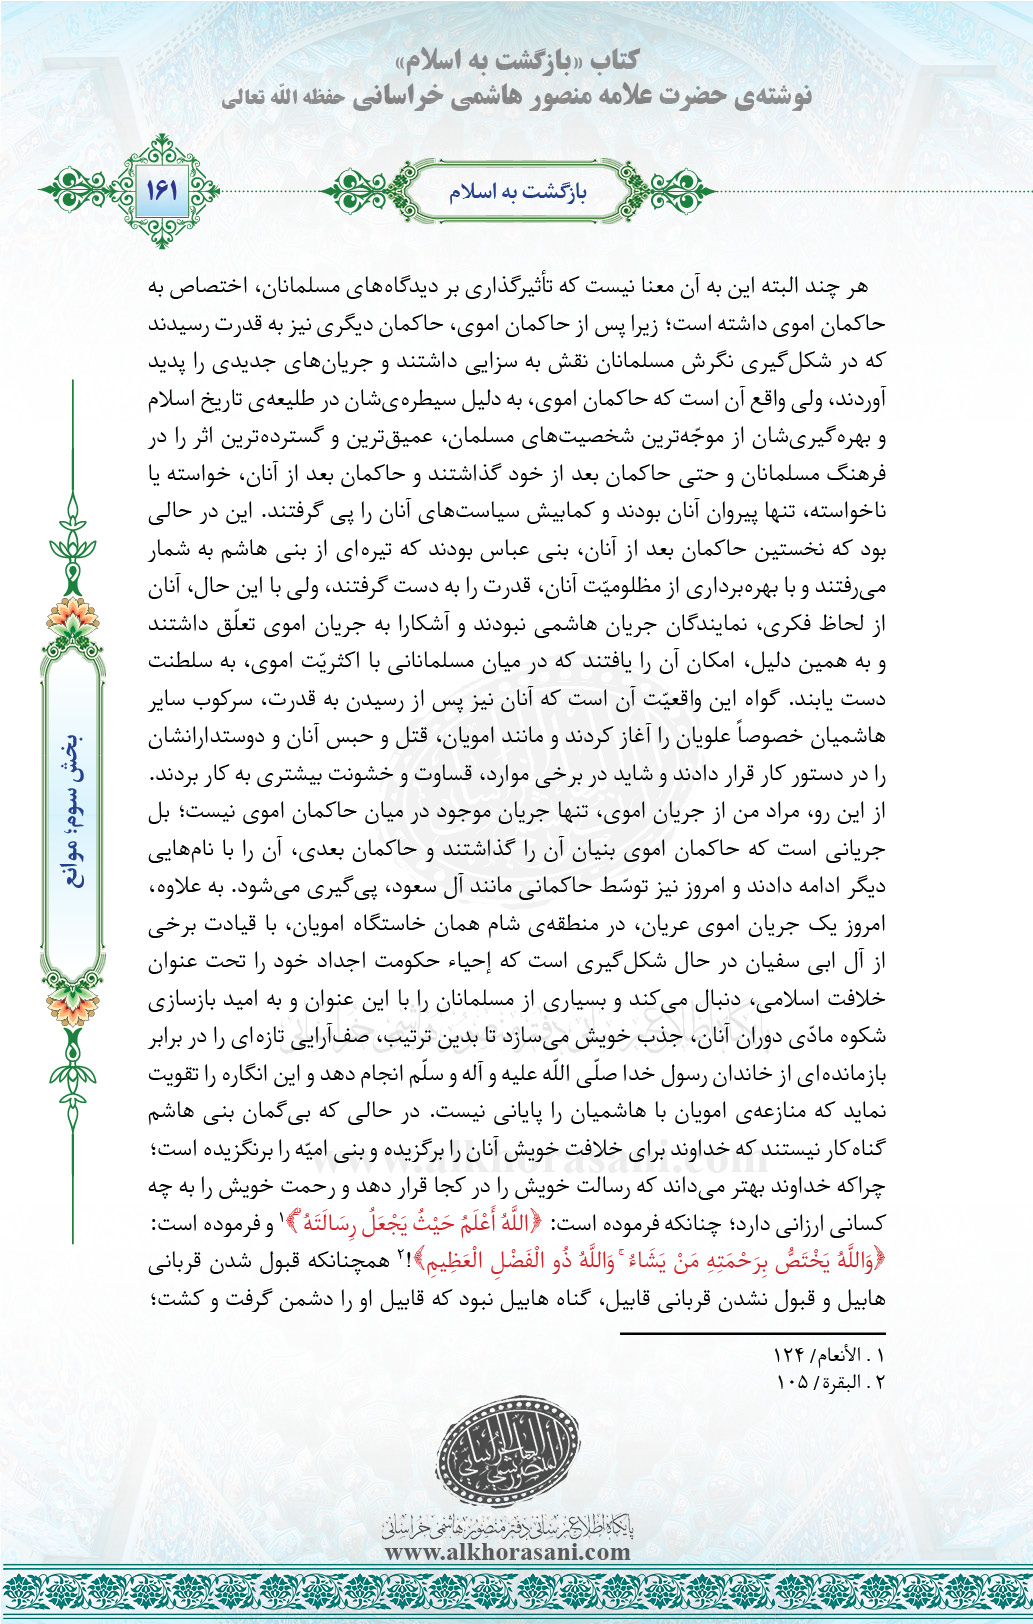 کتاب «بازگشت به اسلام»
نوشته‌ی حضرت علامه منصور هاشمی خراسانی حفظه الله تعالی
۱۶۱
بازگشت به اسلام
هر چند البته این به آن معنا نیست که تأثیرگذاری بر دیدگاه‌های مسلمانان، اختصاص به
حاکمان اموی داشته است؛ زیرا پس از حاکمان اموی، حاکمان دیگری نیز به قدرت رسیدند
که در شکل‌گیری نگرش مسلمانان نقش به سزایی داشتند و جریان‌های جدیدی را پدید
آوردند، ولی واقع آن است که حاکمان اموی، به دلیل سیطره‌ی‌شان در طلیعه‌ی تاریخ اسلام
و بهره‌گیری‌شان از موجّه‌ترین شخصیت‌های مسلمان، عمیق‌ترین و گسترده‌ترین اثر را در
فرهنگ مسلمانان و حتی حاکمان بعد از خود گذاشتند و حاکمان بعد از آنان، خواسته یا
ناخواسته، تنها پیروان آنان بودند و کمابیش سیاست‌های آنان را پی گرفتند. این در حالی
بود که نخستین حاکمان بعد از آنان، بنی عباس بودند که تیره‌ای از بنی هاشم به شمار
می‌رفتند و با بهره‌برداری از مظلومیّت آنان، قدرت را به دست گرفتند، ولی با این حال، آنان
از لحاظ فکری، نمایندگان جریان هاشمی نبودند و آشکارا به جریان اموی تعلّق داشتند
و به همین دلیل، امکان آن را یافتند که در میان مسلمانانی با اکثریّت اموی، به سلطنت
دست یابند. گواه این واقعیّت آن است که آنان نیز پس از رسیدن به قدرت، سرکوب سایر
هاشمیان خصوصاً علویان را آغاز کردند و مانند امویان، قتل و حبس آنان و دوستدارانشان
را در دستور کار قرار دادند و شاید در برخی موارد، قساوت و خشونت بیشتری به کار بردند.
از این رو، مراد من از جریان اموی، تنها جریان موجود در میان حاکمان اموی نیست؛ بل
جریانی است که حاکمان اموی بنیان آن را گذاشتند و حاکمان بعدی، آن را با نام‌هایی
دیگر ادامه دادند و امروز نیز توسّط حاکمانی مانند آل سعود، پی‌گیری می‌شود. به علاوه،
امروز یک جریان اموی عریان، در منطقه‌ی شام همان خاستگاه امویان، با قیادت برخی
از آل ابی سفیان در حال شکل‌گیری است که إحیاء حکومت اجداد خود را تحت عنوان
خلافت اسلامی، دنبال می‌کند و بسیاری از مسلمانان را با این عنوان و به امید بازسازی
شکوه مادّی دوران آنان، جذب خویش می‌سازد تا بدین ترتیب، صف‌آرایی تازه‌ای را در برابر
بازمانده‌ای از خاندان رسول خدا صلّی اللّه علیه و آله و سلّم انجام دهد و این انگاره را تقویت
نماید که منازعه‌ی امویان با هاشمیان را پایانی نیست. در حالی که بی‌گمان بنی هاشم
گناه‌کار نیستند که خداوند برای خلافت خویش آنان را برگزیده و بنی امیّه را برنگزیده است؛
چراکه خداوند بهتر می‌داند که رسالت خویش را در کجا قرار دهد و رحمت خویش را به چه
کسانی ارزانی دارد؛ چنانکه فرموده است: ﴿اللَّهُ أَعْلَمُ حَيْثُ يَجْعَلُ رِسَالَتَهُ ۗ﴾۱ و فرموده است:
﴿وَاللَّهُ يَخْتَصُّ بِرَحْمَتِهِ مَنْ يَشَاءُ ۚ وَاللَّهُ ذُو الْفَضْلِ الْعَظِيمِ﴾!۲ همچنانکه قبول شدن قربانی
هابیل و قبول نشدن قربانی قابیل، گناه هابیل نبود که قابیل او را دشمن گرفت و کشت؛
بخش سوم؛ موانع
۱ . الأنعام/ ۱۲۴
۲ . البقرة/ ۱۰۵
پایگاه اطلاع‌رسانی دفتر منصور هاشمی خراسانی
www.alkhorasani.com